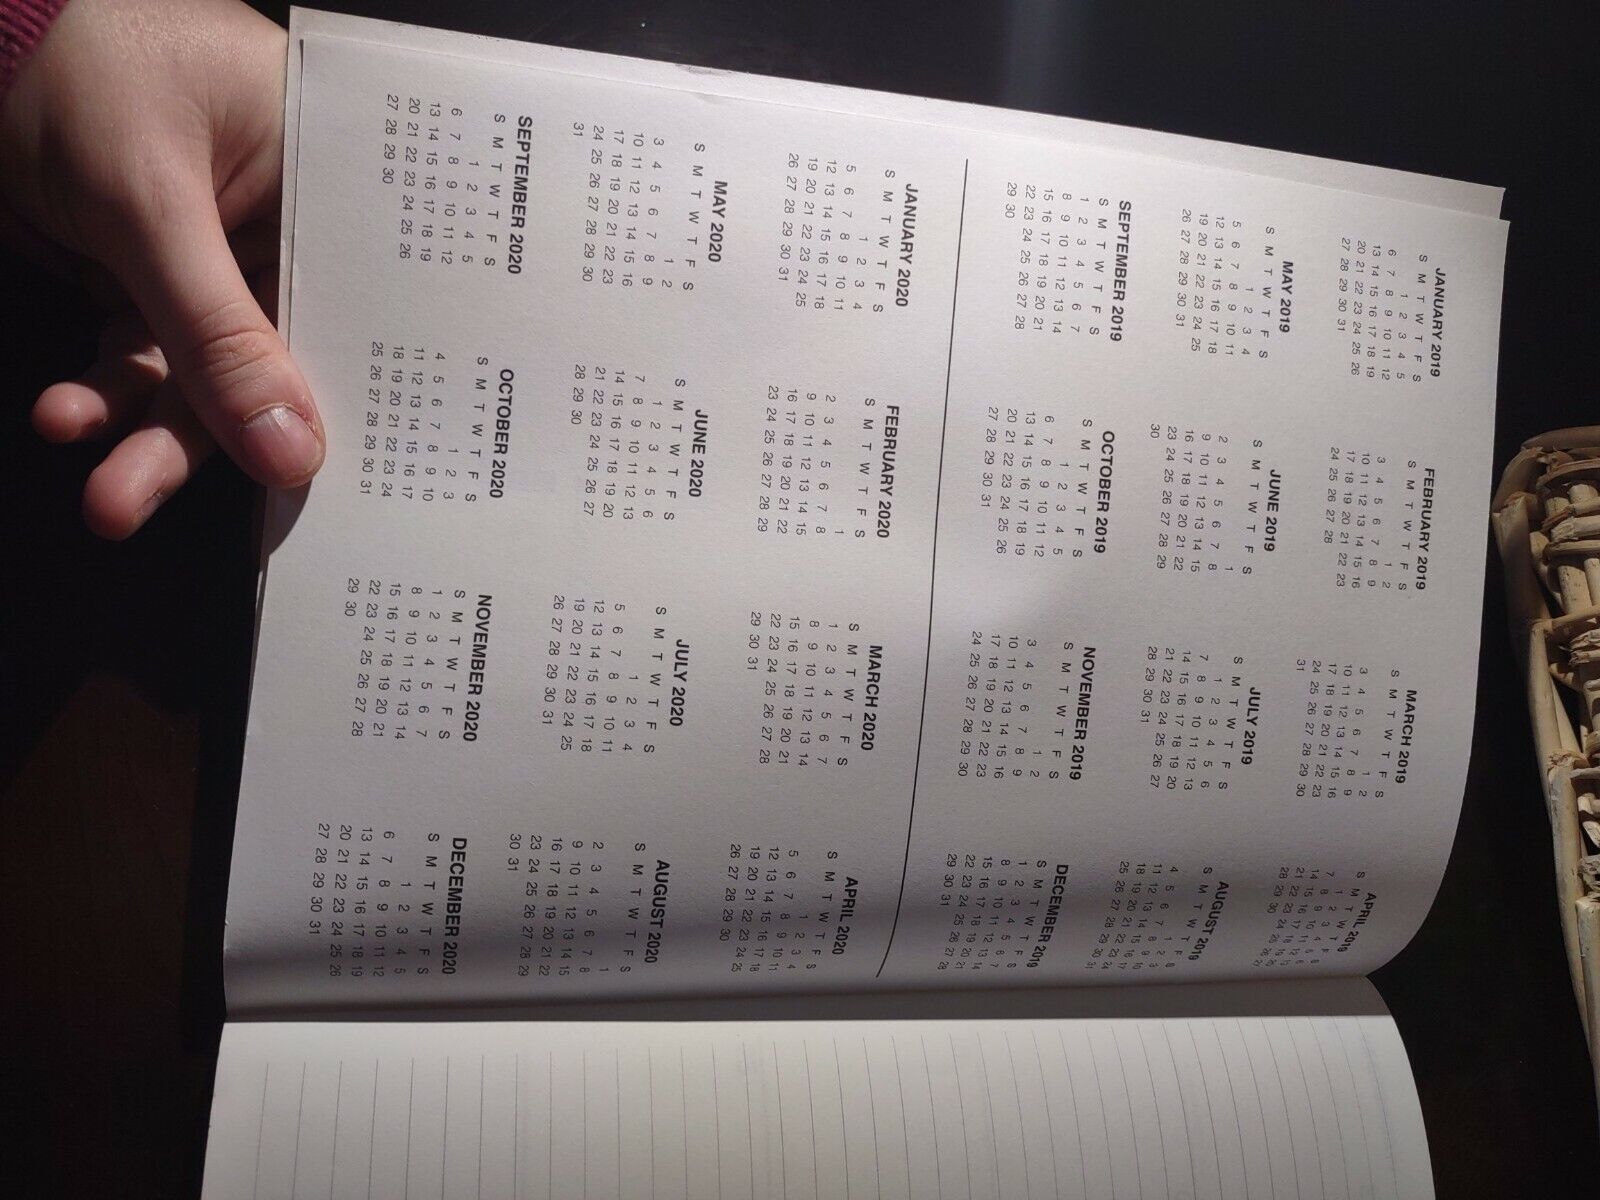 JANUARY 2019
S M T W T F S
1 2 3 4 5
6 7 8 9 10 11 12
13 14 15 16 17 18 19
20 21 22 23 24 25 26
27 28 29 30 31
FEBRUARY 2019
S M T W T F S
1 2
3 4 5 6 7 8 9
10 11 12 13 14 15 16
17 18 19 20 21 22 23
24 25 26 27 28
MARCH 2019
S M T W T F S
1 2
3 4 5 6 7 8 9
10 11 12 13 14 15 16
17 18 19 20 21 22 23
24 25 26 27 28 29 30
31
APRIL 2019
S M T W T F S
1 2 3 4 5 6
7 8 9 10 11 12 13
14 15 16 17 18 19 20
21 22 23 24 25 26 27
28 29 30
MAY 2019
S M T W T F S
1 2 3 4
5 6 7 8 9 10 11
12 13 14 15 16 17 18
19 20 21 22 23 24 25
26 27 28 29 30 31
JUNE 2019
S M T W T F S
1
2 3 4 5 6 7 8
9 10 11 12 13 14 15
16 17 18 19 20 21 22
23 24 25 26 27 28 29
30
JULY 2019
S M T W T F S
1 2 3 4 5 6
7 8 9 10 11 12 13
14 15 16 17 18 19 20
21 22 23 24 25 26 27
28 29 30 31
AUGUST 2019
S M T W T F S
1 2 3
4 5 6 7 8 9 10
11 12 13 14 15 16 17
18 19 20 21 22 23 24
25 26 27 28 29 30 31
SEPTEMBER 2019
S M T W T F S
1 2 3 4 5 6 7
8 9 10 11 12 13 14
15 16 17 18 19 20 21
22 23 24 25 26 27 28
29 30
OCTOBER 2019
S M T W T F S
1 2 3 4 5
6 7 8 9 10 11 12
13 14 15 16 17 18 19
20 21 22 23 24 25 26
27 28 29 30 31
NOVEMBER 2019
S M T W T F S
1 2
3 4 5 6 7 8 9
10 11 12 13 14 15 16
17 18 19 20 21 22 23
24 25 26 27 28 29 30
DECEMBER 2019
S M T W T F S
1 2 3 4 5 6 7
8 9 10 11 12 13 14
15 16 17 18 19 20 21
22 23 24 25 26 27 28
29 30 31
JANUARY 2020
S M T W T F S
1 2 3 4
5 6 7 8 9 10 11
12 13 14 15 16 17 18
19 20 21 22 23 24 25
26 27 28 29 30 31
FEBRUARY 2020
S M T W T F S
1
2 3 4 5 6 7 8
9 10 11 12 13 14 15
16 17 18 19 20 21 22
23 24 25 26 27 28 29
MARCH 2020
S M T W T F S
1 2 3 4 5 6 7
8 9 10 11 12 13 14
15 16 17 18 19 20 21
22 23 24 25 26 27 28
29 30 31
APRIL 2020
S M T W T F S
1 2 3 4
5 6 7 8 9 10 11
12 13 14 15 16 17 18
19 20 21 22 23 24 25
26 27 28 29 30
MAY 2020
S M T W T F S
1 2
3 4 5 6 7 8 9
10 11 12 13 14 15 16
17 18 19 20 21 22 23
24 25 26 27 28 29 30
31
JUNE 2020
S M T W T F S
1 2 3 4 5 6
7 8 9 10 11 12 13
14 15 16 17 18 19 20
21 22 23 24 25 26 27
28 29 30
JULY 2020
S M T W T F S
1 2 3 4
5 6 7 8 9 10 11
12 13 14 15 16 17 18
19 20 21 22 23 24 25
26 27 28 29 30 31
AUGUST 2020
S M T W T F S
1
2 3 4 5 6 7 8
9 10 11 12 13 14 15
16 17 18 19 20 21 22
23 24 25 26 27 28 29
30 31
SEPTEMBER 2020
S M T W T F S
1 2 3 4 5
6 7 8 9 10 11 12
13 14 15 16 17 18 19
20 21 22 23 24 25 26
27 28 29 30
OCTOBER 2020
S M T W T F S
1 2 3
4 5 6 7 8 9 10
11 12 13 14 15 16 17
18 19 20 21 22 23 24
25 26 27 28 29 30 31
NOVEMBER 2020
S M T W T F S
1 2 3 4 5 6 7
8 9 10 11 12 13 14
15 16 17 18 19 20 21
22 23 24 25 26 27 28
29 30
DECEMBER 2020
S M T W T F S
1 2 3 4 5
6 7 8 9 10 11 12
13 14 15 16 17 18 19
20 21 22 23 24 25 26
27 28 29 30 31